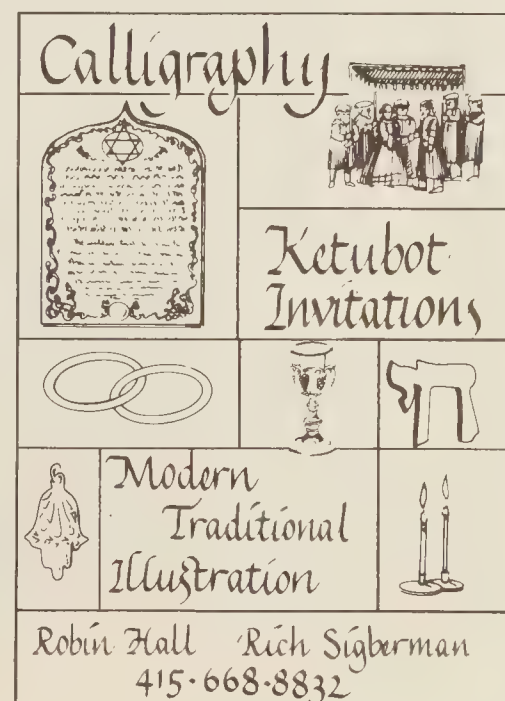 Calligraphy
Ketubot
Invitations
חי
Modern
Traditional
Illustration
Robin Hall Rich Sigberman
415·668·8832